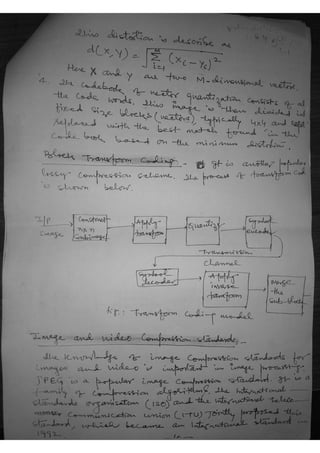 This distortion is describe as
d(x,y) = √ M Σ i=1 (xi - yi)²
Here X and Y are two M-dimensional vectors.
4. The codebook of vector quantization consists of all
the code words. This image is then divided into
fixed size blocks (vectors), typically 4x4 and
replaced with the best match found in the
code book based on the minimum distortion.
Block Transform Coding:- It is another popular
lossy compression scheme. The process of transform cod
is shown below.
I/P
image
Construct
nxn
Subimage
Apply
transform
Quantize
Symbol
encoder
Transmission
channel
Symbol
decoder
Apply
inverse
transform
Merge
the
Sub-blocks
Fig: Transform Coding model
Image and video Compression standards:-
The knowledge of image compression standards for
images and video is important in image processing.
JPEG is a popular image compression standard. It is a
family of compression algorithms the International
standards organisation (ISO) and the international telecom
munication union (ITU) jointly proposed this
standard, which became an International standard in
1992.